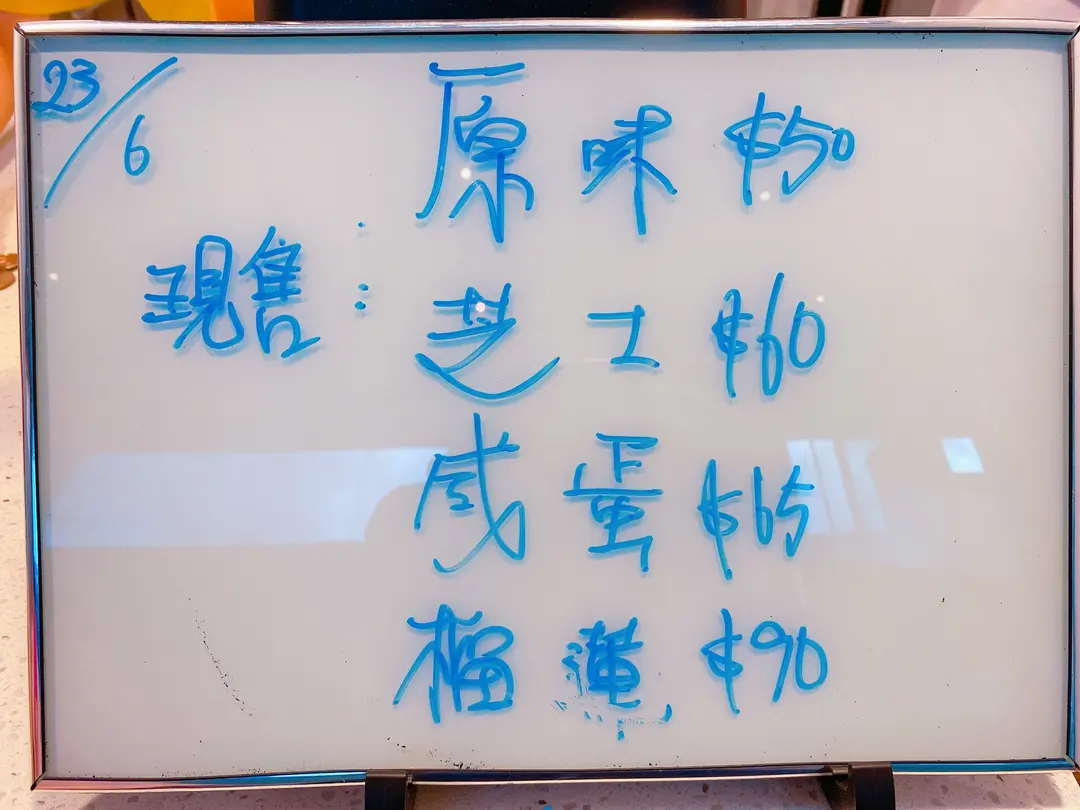 23/6
現售：
原味 $50
芝士 $60
咸蛋 $65
榴蓮 $90